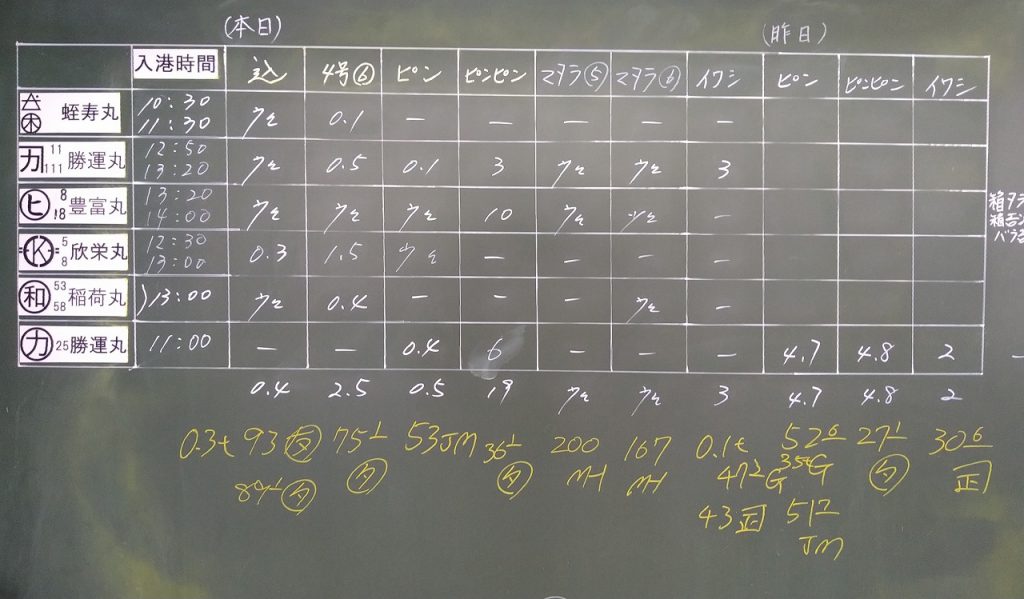 (本日) (昨日)
入港時間 込 4号⑥ ピン ピンピン マタラ⑤ マタラ⑥ イワシ ピン ピンピン イワシ
蛭寿丸 10:30 11:30 ケ 0.1 — — — — —
カ 11 111 勝運丸 12:50 13:20 ケ 0.5 0.1 3 ケ ケ 3
ヒ 8 18 豊富丸 13:20 14:00 ケ ケ ケ 10 ケ ケ —
K 5 8 欣栄丸 12:30 13:00 0.3 1.5 ケ — — — —
和 53 58 稲荷丸 13:00 ケ 0.4 — — — ケ —
カ 25 勝運丸 11:00 — — 0.4 6 — — — 4.7 4.8 2
0.4 2.5 0.5 19 ケ ケ 3 4.7 4.8 2
箱タラ
バラ
0.3t 93 75 53JM 36 200 167 0.1t 52 27 30
89 タ タ タ MH MH 47 G 35 G タ 正
43 正 51
JM